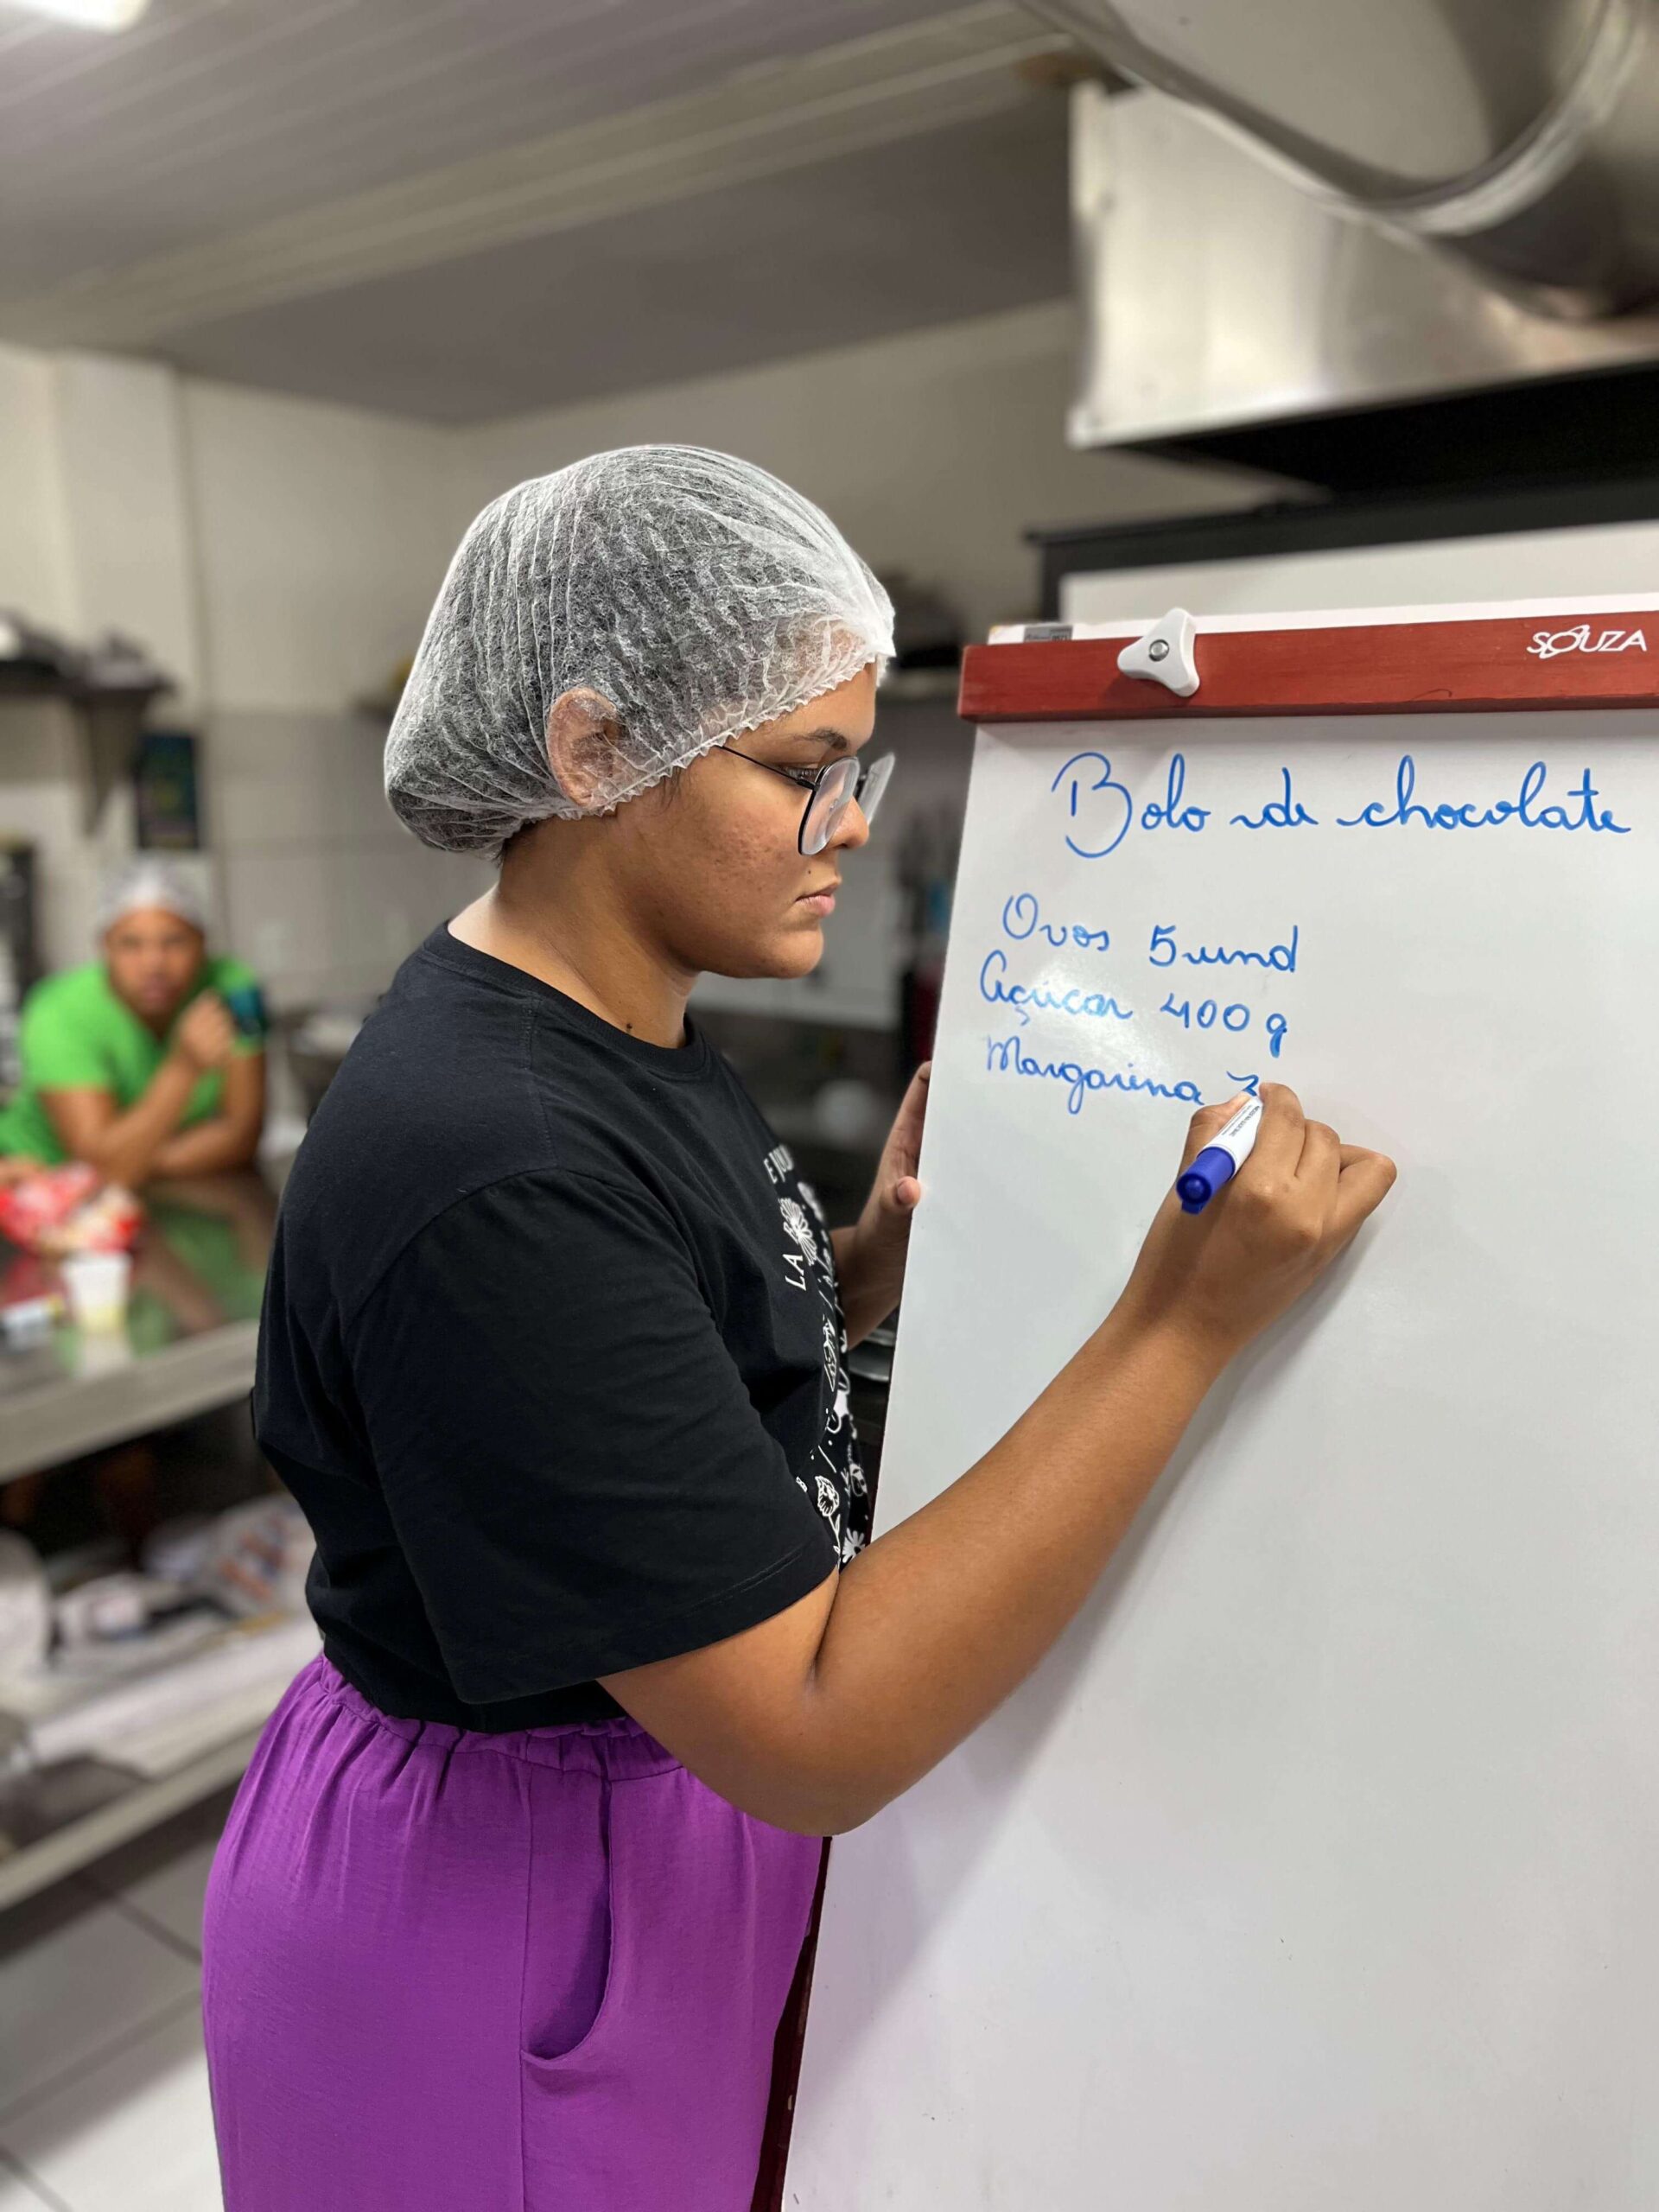 SOUZA
Bolo de chocolate
Ovos 5 und
Açúcar 400 g
Margarina 3
LA